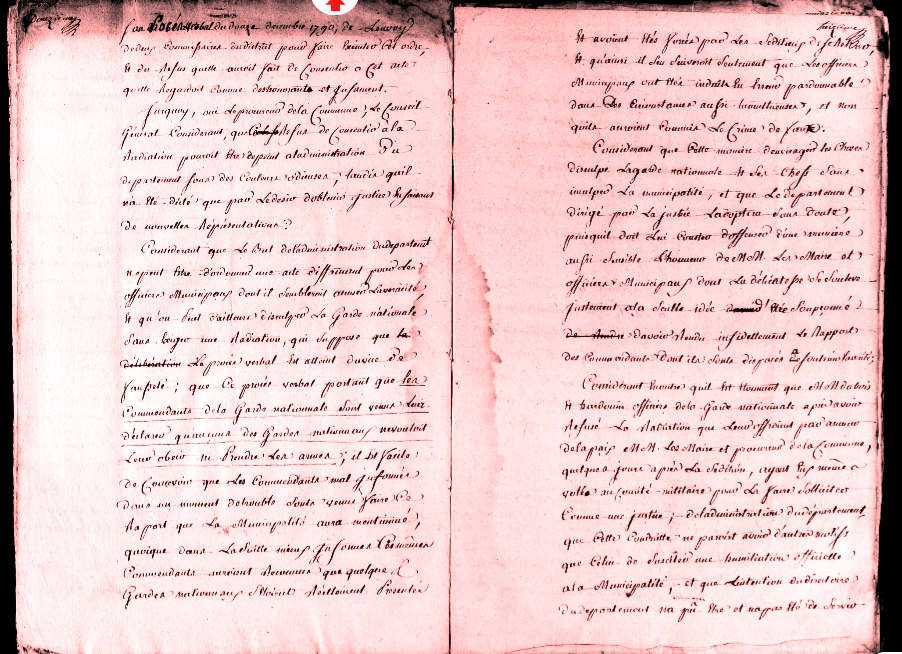 Procès verbal du douze decembre 1790, de l'envoy
de deux Commissaires du district pour faire Ceder Cet ordre,
et du Refus quelle auroit fait de Consentir a Cet acte
quelle Regardoit Comme deshonorante et Infamant.
Surquoy, oui Le procureur de la Commune; Le Conseil
Général Considerant, que Refus de Consentir à la
Radiation pouroit être depeint à ladministration du
departement sous des Couleurs odieuses, tandis quil
n'a été dicté que par Le desir d'obtenir justice
de nouvelles Réprésentations?
Considerant que Le But de ladministration du departement
ne peut être d'ordonner une acte diffamant pour Les
officiers Municipaux dont il sembleroit
et qu'on peut d'ailleurs disculper La Garde nationale
sans exiger une Radiation, qui suppose que la
déliberation Le procès verbal est atteint du vice de
fausseté; que Ce procès verbal portant que les
Commendants de la Garde nationnale sont venus Leur
declarer qu'aucuns des Gardes nationaux ne vouloit
Leur obeir ni Prendre Les armes; il est facile
de Concevoir que Les Commendants mal Informés
dans un moment de trouble sont venus faire Ce
Raport que La Municipalité aura mentionné,
quoique dans La suitte mieux Informés Ces mêmes
Commendants auroient Reconnus que quelques
Gardes nationaux s'étoient Réellement Présentés
et avoient étés forcés par Les Séditieux de se Retirer,
et qu'ainsi il s'en suivroit seulement que Les officiers
Municipaux ont été induits en Erreur pardonnable
dans Des Circonstances aussi tumultueuses, et non
qu'ils auroient Commis Le Crime de faux.
Considerant que Cette maniere d'envisager les Choses
disculpe La garde nationnale et ses Chefs sans
inculper La municipalité, et que Le departement
dirigé par La justice Ladoptera sans doute,
puisquil doit Lui Couter d'offenser d'une maniere
aussi sensible L'honneur de MM. Les Maire et
officiers Municipaux dont La délicatesse se souleve
justement à la seulle idée d'être soupçonné
de Rendre d'avoir Rendu infidellement Le Rapport
des Commendants
Considérant encore quil est étonnant que MM
et officiers de la Garde nationnale après avoir
Refusé La Radiation que Leur offroient par amour
de la paix MM. Les Maire et procureur de La Commune,
quelques jours après La Sedition, ayent Eux même
au Comité militaire pour La faire Solliciter
Comme une justice; de ladministration du departement
que Cette Conduitte ne paroit avoir d'autres motifs
que Celui de Susciter une humiliation officielle
à la Municipalité, et que L'intention du directoire
du departement n'a pu être et n'a pas été de Servir